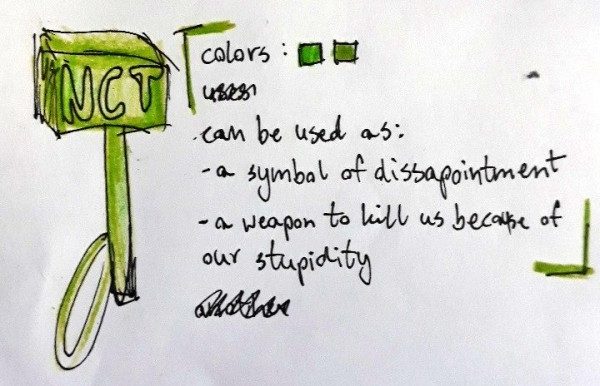 NCT
colors:
can be used as:
- a symbol of dissapointment
- a weapon to kill us because of
our stupidity